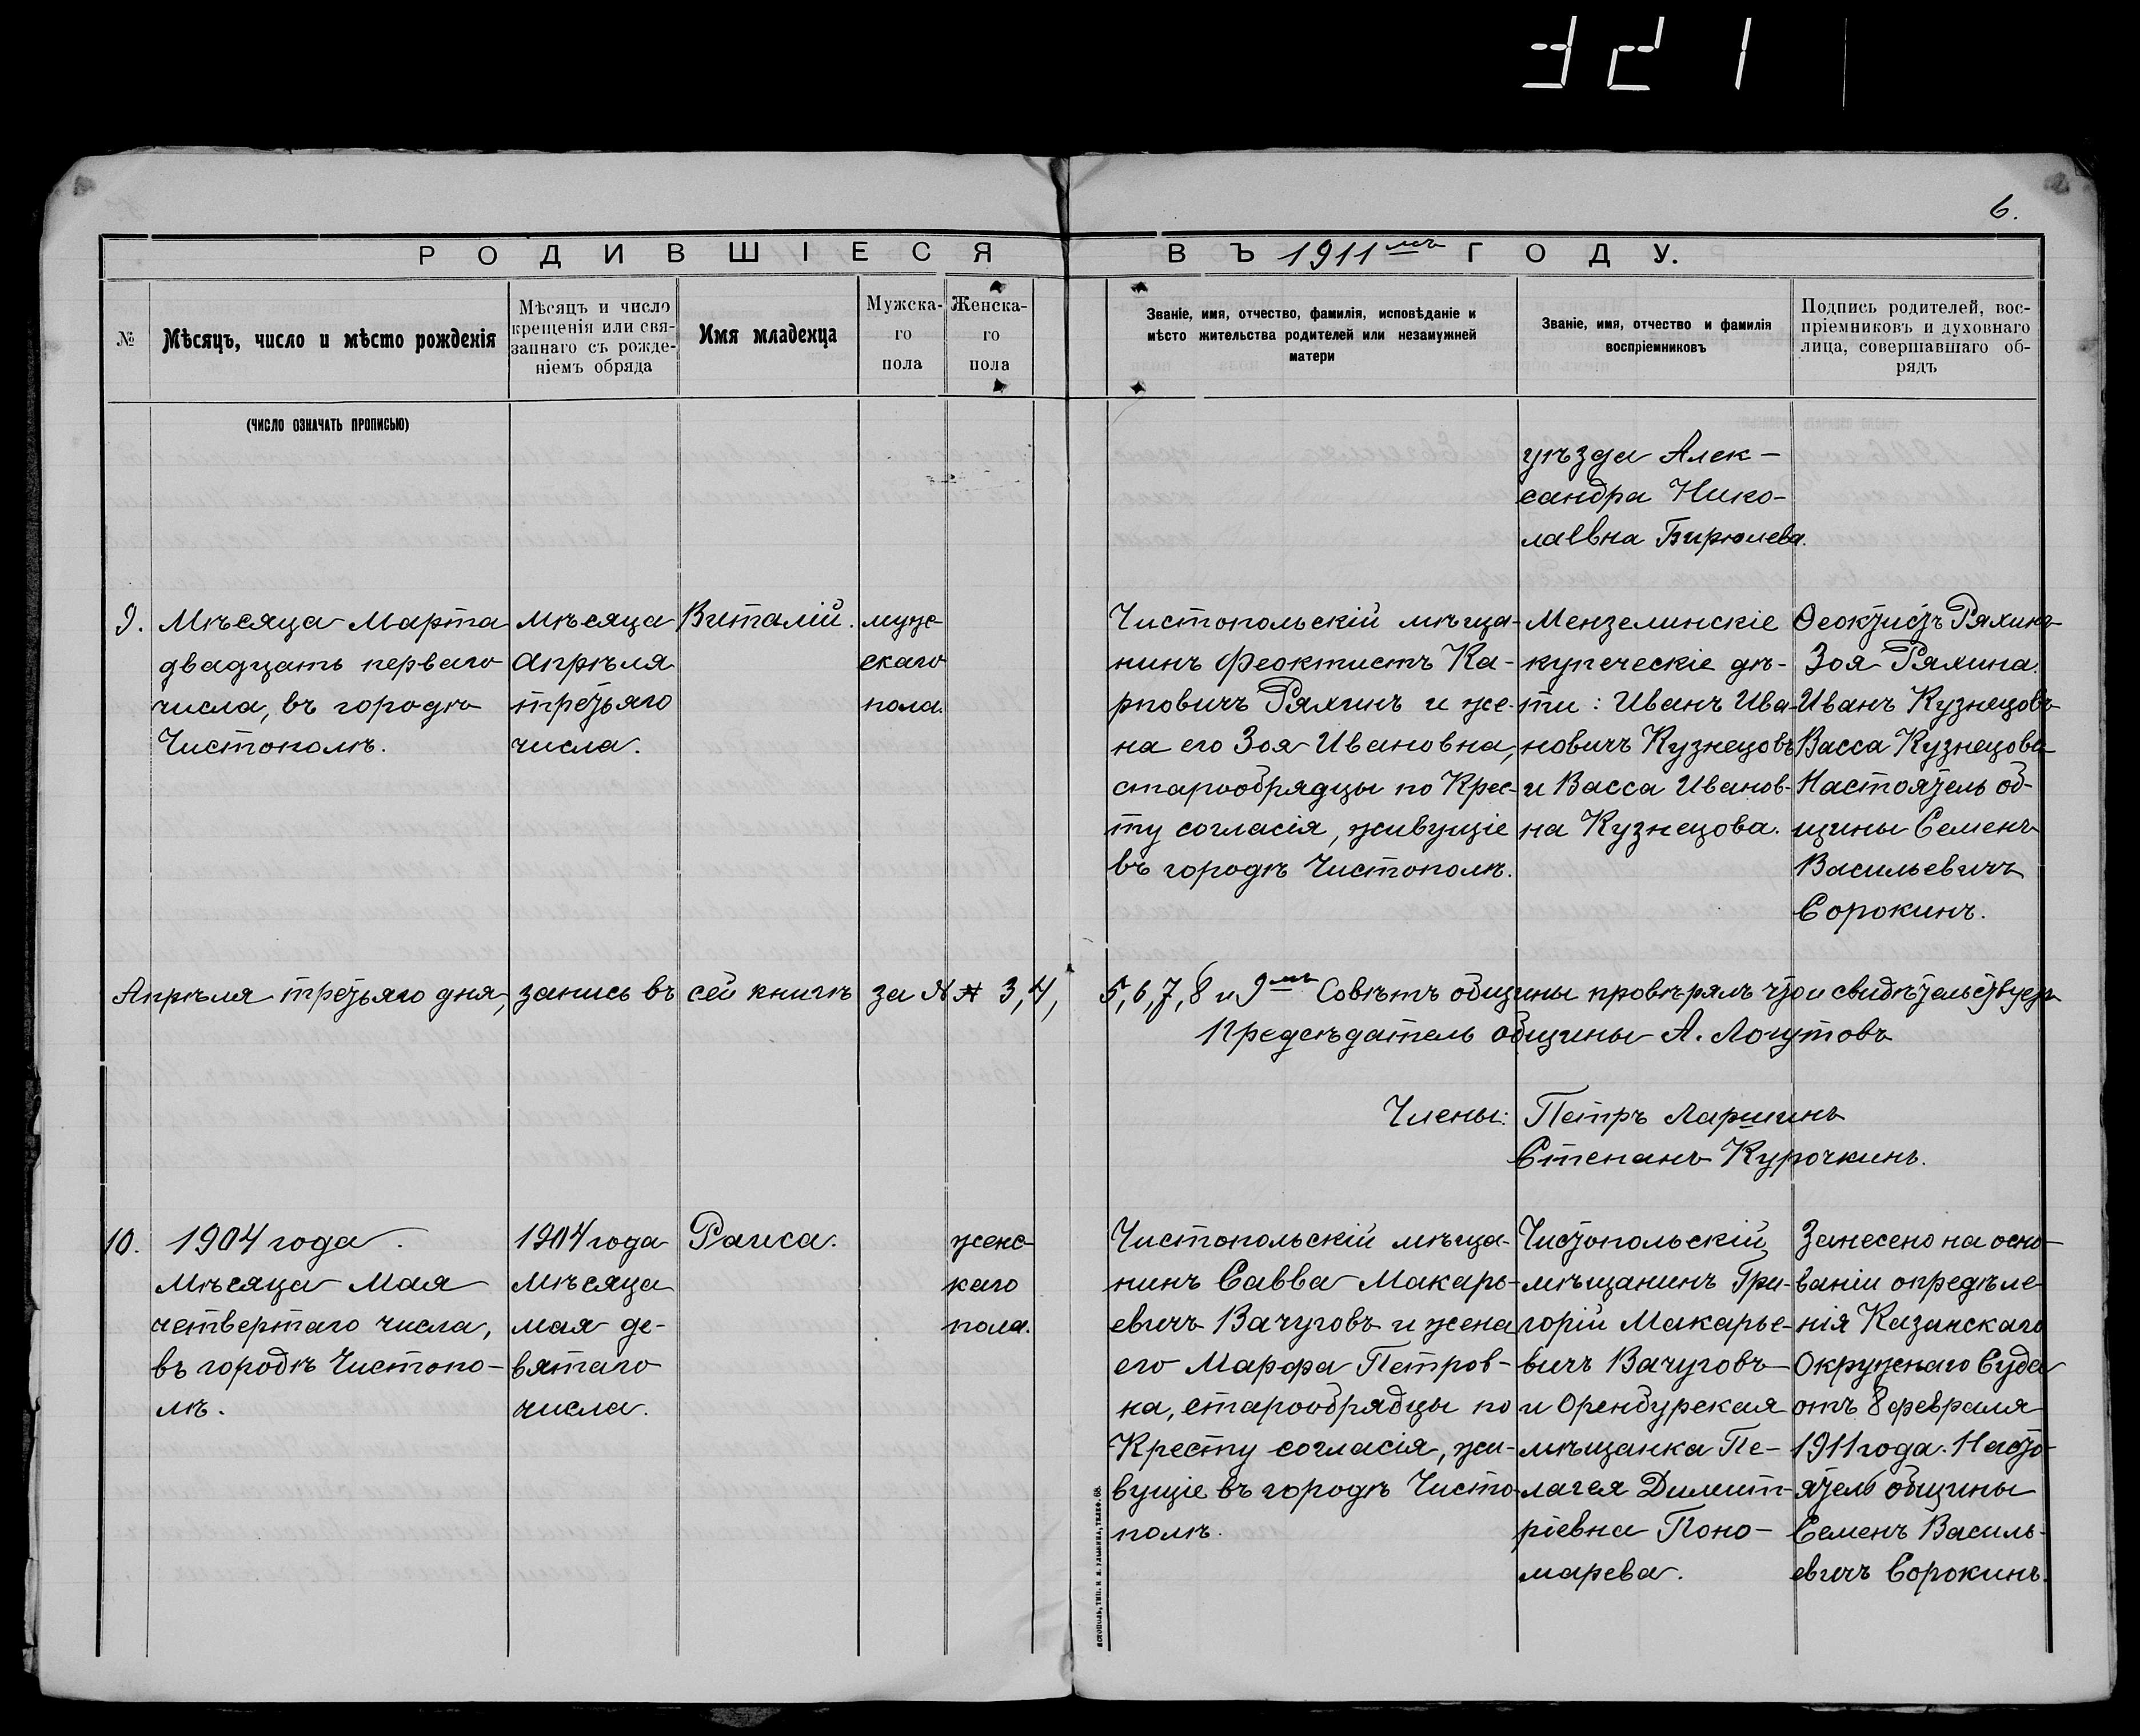 321
6.
РОДИВШІЕСЯ ВЪ 1911мъ ГОДУ.
№
Мѣсяцъ, число и мѣсто рожденія
Мѣсяцъ и число
крещенія или свя-
заннаго съ рожде-
ніемъ обряда
Имя младенца
Мужска-
го
пола
Женска-
го
пола
Званіе, имя, отчество, фамилія, исповѣданіе и
мѣсто жительства родителей или незамужней
матери
Званіе, имя, отчество и фамилія
воспріемниковъ
Подпись родителей, вос-
пріемниковъ и духовнаго
лица, совершавшаго об-
рядъ
(ЧИСЛО ОЗНАЧАТЬ ПРОПИСЬЮ)
уѣзда Алек-
сандра Нико-
лаевна Бирюлева.
9.
Мѣсяца Марта
двадцать перваго
числа, въ городѣ
Чистополѣ.
Мѣсяца
Апрѣля
третьяго
числа.
Виталій.
муже-
скаго
пола.
Чистопольскій мѣща-
нинъ Феоктистъ Ка-
рповичъ Ряхинъ и же-
на его Зоя Ивановна,
старообрядцы по Крес-
ту согласія, живущіе
въ городѣ Чистополѣ.
Мензелинскіе
купеческіе дѣ-
ти: Иванъ Ива-
новичъ Кузнецовъ
и Васса Иванов-
на Кузнецова.
Ѳеоктистъ Ряхинъ
Зоя Ряхина.
Иванъ Кузнецовъ
Васса Кузнецова
Настоятель об-
щины Семенъ
Васильевичъ
Сорокинъ.
Апрѣля третьяго дня, запись въ сей книгѣ за № № 3, 4, 5, 6, 7, 8 и 9мъ Совѣтъ общины провѣрялъ что и свидѣтельствуетъ
Предсѣдатель общины А. Логутовъ
Члены: Петръ Ларшинъ
Степанъ Курочкинъ.
10.
1904 года.
Мѣсяца Мая
четвертаго числа,
въ городѣ Чистопо-
лѣ.
1904 года
Мѣсяца
мая де-
вятаго
числа.
Раиса.
женс-
каго
пола.
Чистопольскій мѣща-
нинъ Савва Макарь-
евичъ Вачуговъ и жена
его Марфа Петров-
на, старообрядцы по
Кресту согласія, жи-
вущіе въ городѣ Чисто-
полѣ.
Чистопольскій
мѣщанинъ Гри-
горій Макарье-
вичъ Вачуговъ
и Оренбурская
мѣщанка Пе-
лагея Димит-
ріевна Поно-
марева.
Занесено на осно-
ваніи опредѣле-
нія Казанскаго
Окружнаго Суда
отъ 8 февраля
1911 года. Насто-
ятель общины
Семенъ Василь-
евичъ Сорокинъ.